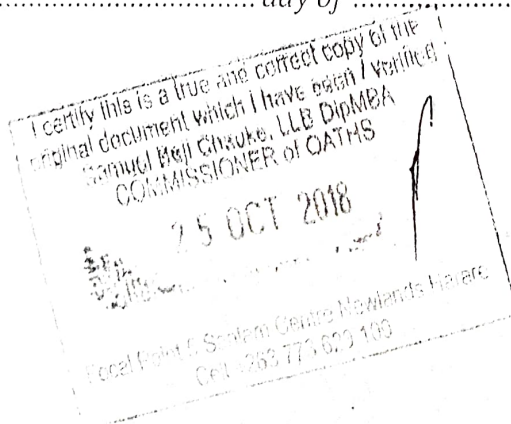 day of
I certify this is a true and correct copy of the
original document which I have seen / verified
Samuel Chauke, LLB DipMBA
COMMISSIONER of OATHS
25 OCT 2018
Focal Point 5 Sanlam Centre Newlands Harare
Cell +263 773 630 100